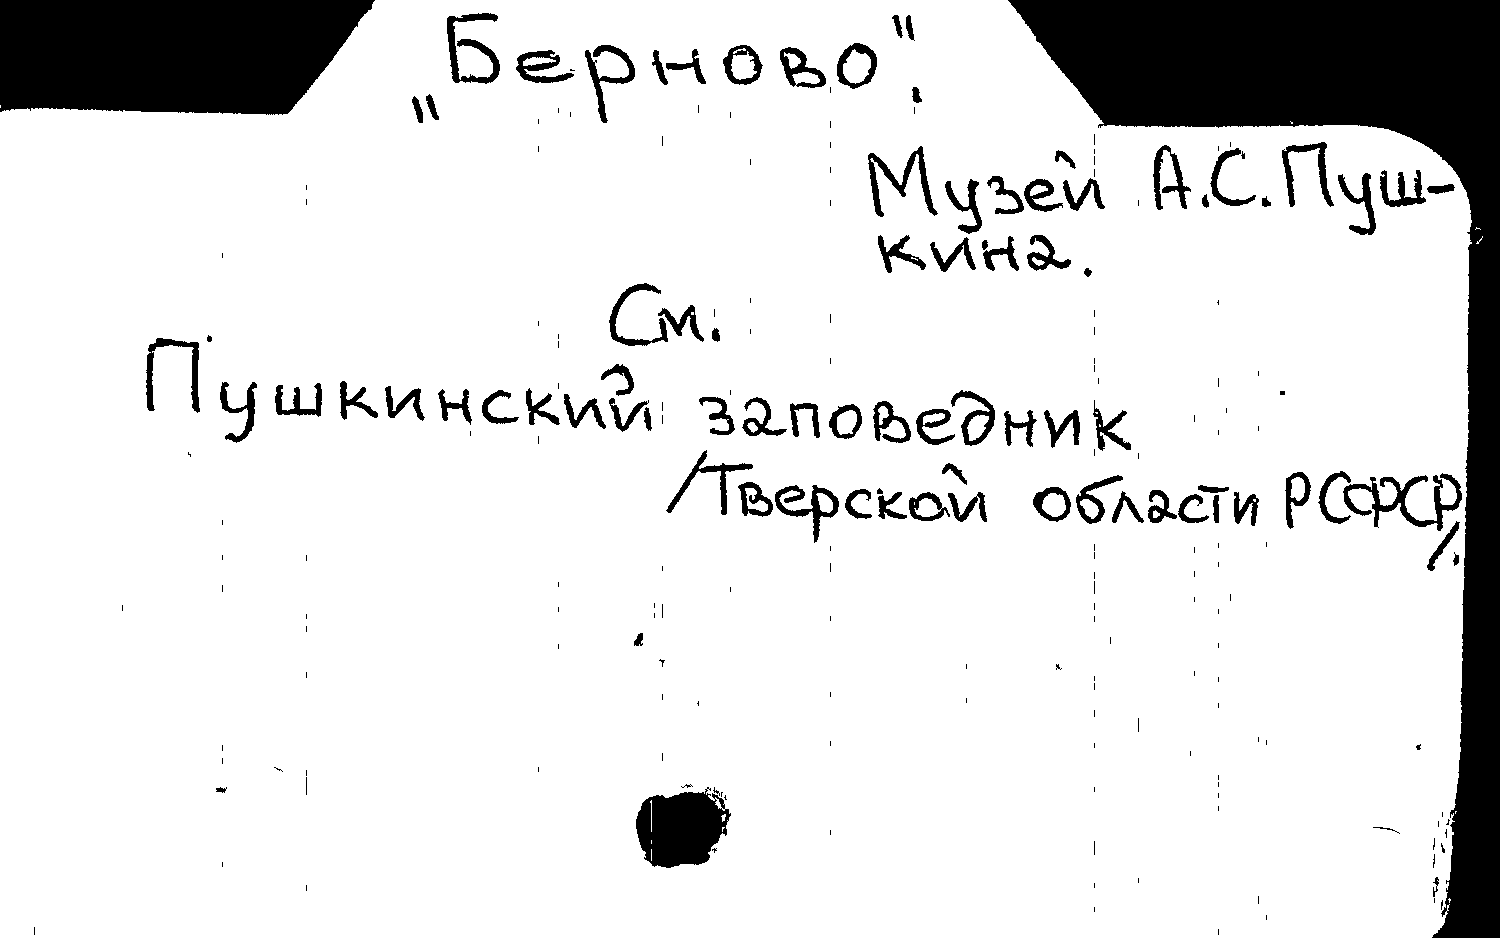 „Берново".
Музей А.С.Пуш-
кина.
См.
Пушкинский заповедник
/Тверской области РСФСР/.